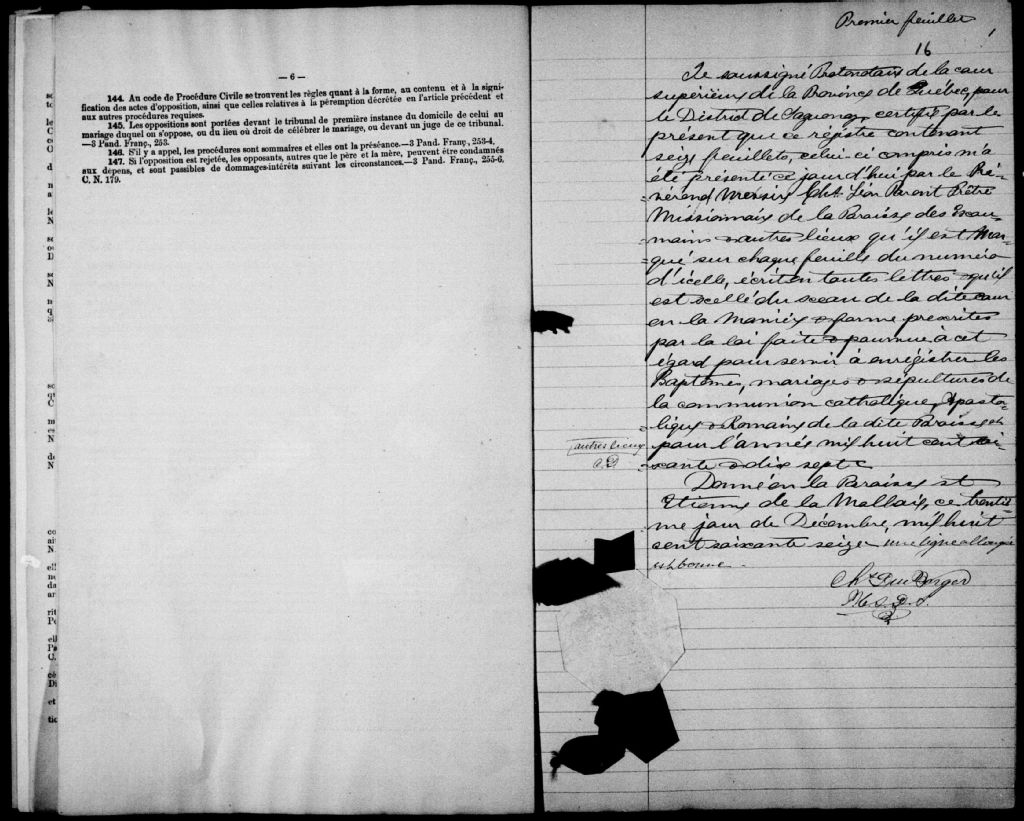 — 6 —
144. Au code de Procédure Civile se trouvent les règles quant à la forme, au contenu et à la signi-
fication des actes d'opposition, ainsi que celles relatives à la péremption décrétée en l'article précédent et
aux autres procédures requises.
145. Les oppositions sont portées devant le tribunal de première instance du domicile de celui au
mariage duquel on s'oppose, ou du lieu où droit de célébrer le mariage, ou devant un juge de ce tribunal.
—3 Pand. Franç., 253.
146. S'il y a appel, les procédures sont sommaires et elles ont la préséance.—3 Pand. Franç., 253-4.
147. Si l'opposition est rejetée, les opposants, autres que le père et la mère, peuvent être condamnés
aux dépens, et sont passibles de dommages-intérêts suivant les circonstances.—3 Pand. Franç., 255-6.
C. N. 179.
Premier feuillet
1
16
Je soussigné Protonotaire de la cour
supérieure de la Province de Québec, pour
le District de Saguenay, certifie par le
présent que ce régistre contenant
seize feuillets, celui-ci compris m'a
été présenté ce jour d'hui par le Ré-
=vérend Messire Chs Léon Parent Prêtre
Missionnaire de la Paroisse des Escou-
mains & autres lieux qu'il est Mar-
=qué sur chaque feuille du numéro
d'icelle, écrit en toutes lettres & qu'il
est scellé du sceau de la dite cour
en la Manière & forme prescrites
par la loi faite & pourvue à cet
égard pour servir à enrégistrer les
Baptêmes, mariages & sépultures de
la communion catholique, Aposto-
=lique & Romaine de la dite Paroisse et
autres lieux
pour l'année mil huit cent soi-
=xante & dix sept
Donné en la Paroisse St
Etienne de la Malbaie, ce trentiè-
me jour de Décembre, mil huit
cent soixante seize une ligne allongée
est bonne
Chs Du Berger
P. C. S. D. S.